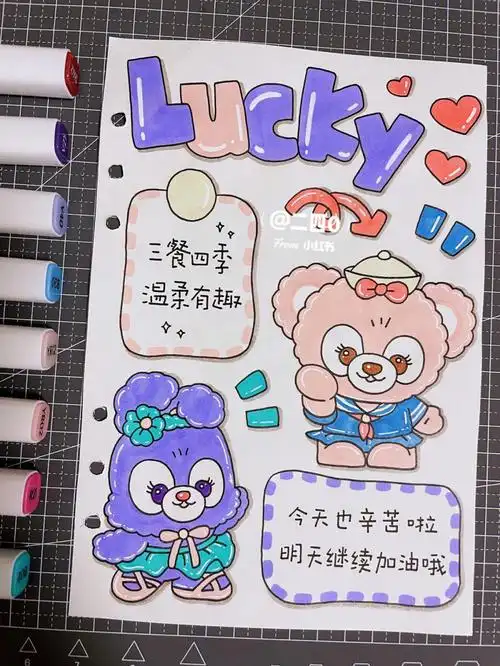 Lucky
@二四0
From 小红书
三餐四季
温柔有趣
今天也辛苦啦
明天继续加油哦